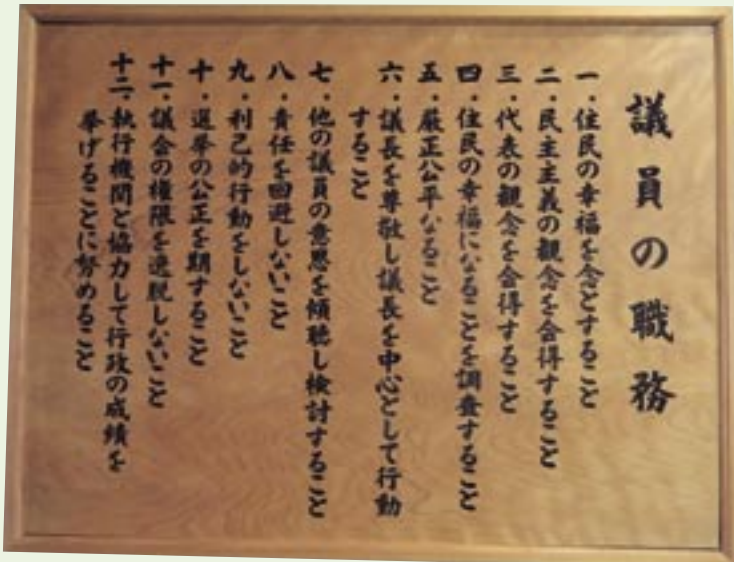 議員の職務
一・住民の幸福を念とすること
二・民主主義の観念を会得すること
三・代表の観念を会得すること
四・住民の幸福になることを調査すること
五・厳正公平なること
六・議長を尊敬し議長を中心として行動
すること
七・他の議員の意思を傾聴し検討すること
八・責任を回避しないこと
九・利己的行動をしないこと
十・選挙の公正を期すること
十一・議会の権限を逸脱しないこと
十二・執行機関と協力して行政の成績を
挙げることに努めること